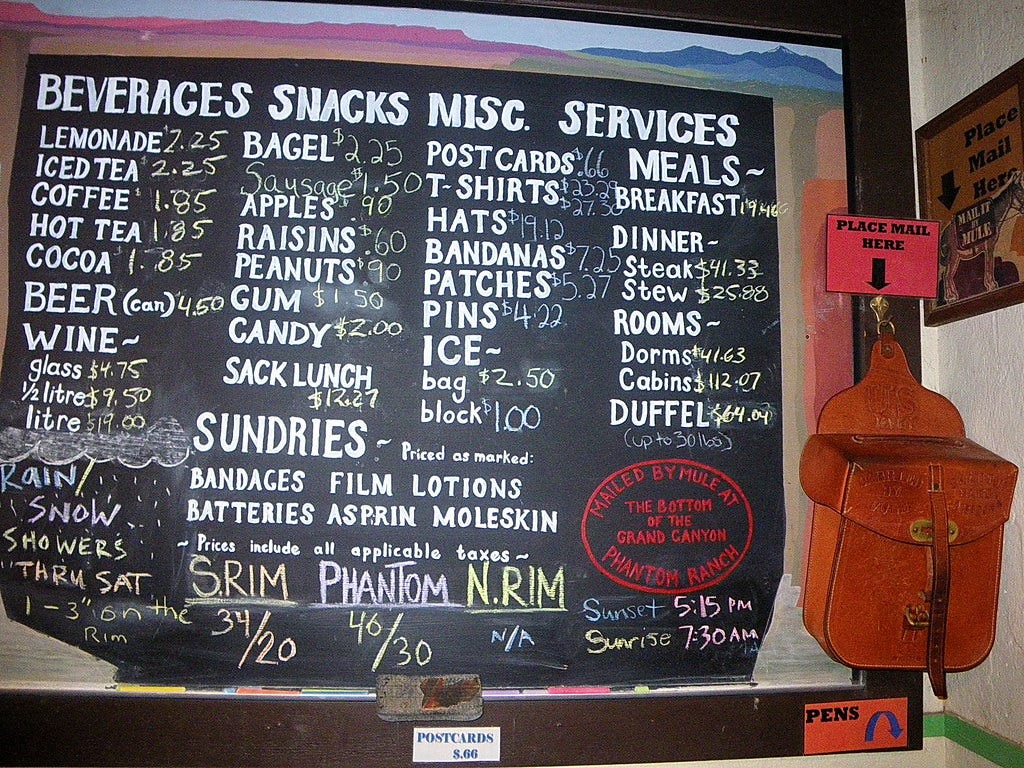 BEVERAGES SNACKS MISC. SERVICES
LEMONADE $2.25
ICED TEA $2.25
COFFEE $1.85
HOT TEA 1.85
COCOA $1.85
BEER (can) 4.50
WINE~
glass $4.75
1/2 litre $9.50
litre $19.00
BAGEL $2.25
Sausage $1.50
APPLES $.90
RAISINS $.60
PEANUTS $.90
GUM $1.50
CANDY $2.00
SACK LUNCH
$12.27
POSTCARDS $.66
T-SHIRTS $23.29
$27.50
HATS $19.12
BANDANAS $7.25
PATCHES $5.27
PINS $4.22
ICE~
bag $2.50
block $1.00
MEALS~
BREAKFAST
DINNER~
Steak $41.33
Stew $25.88
ROOMS~
Dorms $41.63
Cabins $112.07
DUFFEL $64.04
(up to 30 lbs)
SUNDRIES~ Priced as marked:
BANDAGES FILM LOTIONS
BATTERIES ASPRIN MOLESKIN
~Prices include all applicable taxes~
RAIN/
SNOW
SHOWERS
THRU SAT
1-3" on the
Rim
S.RIM PHANTOM N.RIM
34/20 46/30 N/A
MAILED BY MULE AT
THE BOTTOM
OF THE
GRAND CANYON
PHANTOM RANCH
Sunset 5:15 PM
Sunrise 7:30 AM
POSTCARDS
$.66
PLACE MAIL
HERE
Place
Mail
Here
MAIL IT
MULE
PENS